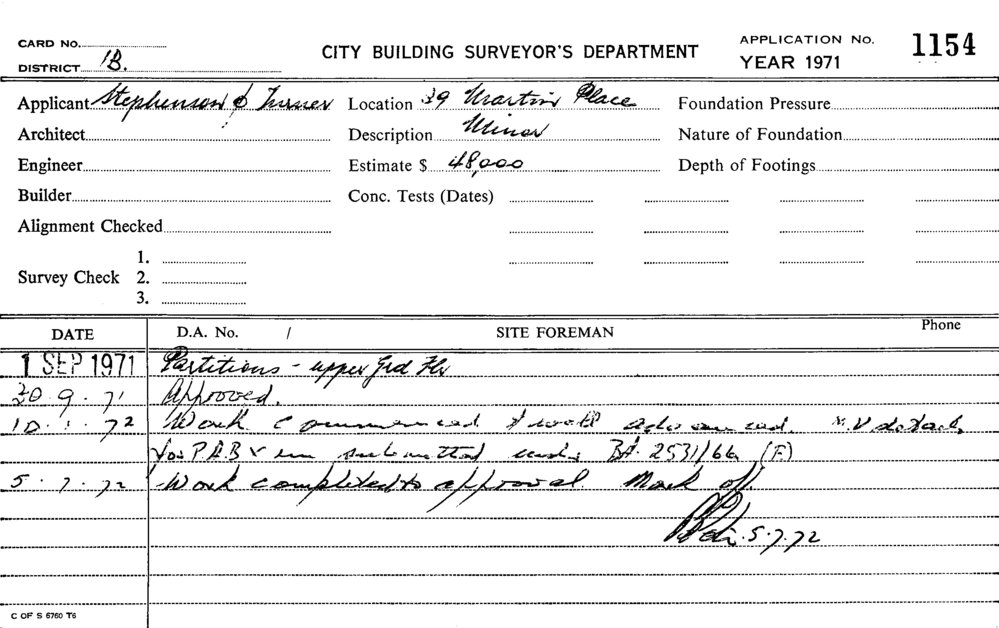 CARD No.
DISTRICT 1B.
CITY BUILDING SURVEYOR'S DEPARTMENT
APPLICATION No. 1154
YEAR 1971
Applicant Stephenson & Turner Location 39 Martin Place Foundation Pressure
Architect Description Minor Nature of Foundation
Engineer Estimate $ 48,000 Depth of Footings
Builder Conc. Tests (Dates)
Alignment Checked
1.
Survey Check 2.
3.
DATE D.A. No. / SITE FOREMAN Phone
1 SEP 1971 Partitions - upper Grd Flr
20.9.71 Approved.
10.1.72 Work commenced & well advanced
submitted under BA. 2531/66 (F)
5.7.72 Work completed to approval Mark off
5.7.72
C OF S 6760 T6